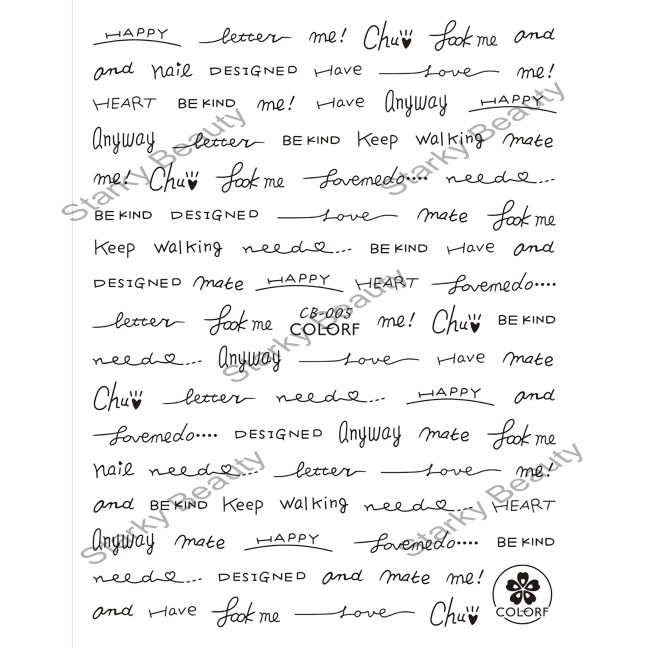 HAPPY letter me! Chu look me and
and nail DESIGNED Have Love me!
HEART BE KIND me! Have Anyway HAPPY
Anyway letter BE KIND Keep walking mate
me! Chu look me Lovemedo.... need...
BE KIND DESIGNED Love mate look me
Keep walking need... BE KIND Have and
DESIGNED mate HAPPY HEART Lovemedo....
letter look me CB-005 COLORF me! Chu BE KIND
need... Anyway Love Have mate
Chu letter need... HAPPY and
Lovemedo.... DESIGNED Anyway mate look me
nail need... letter Love me!
and BE KIND Keep walking need... HEART
Anyway mate HAPPY Lovemedo.... BE KIND
need... DESIGNED and mate me!
and Have look me Love Chu COLORF
Starky Beauty
Starky Beauty
Starky Beauty
Starky Beauty
Starky Beauty